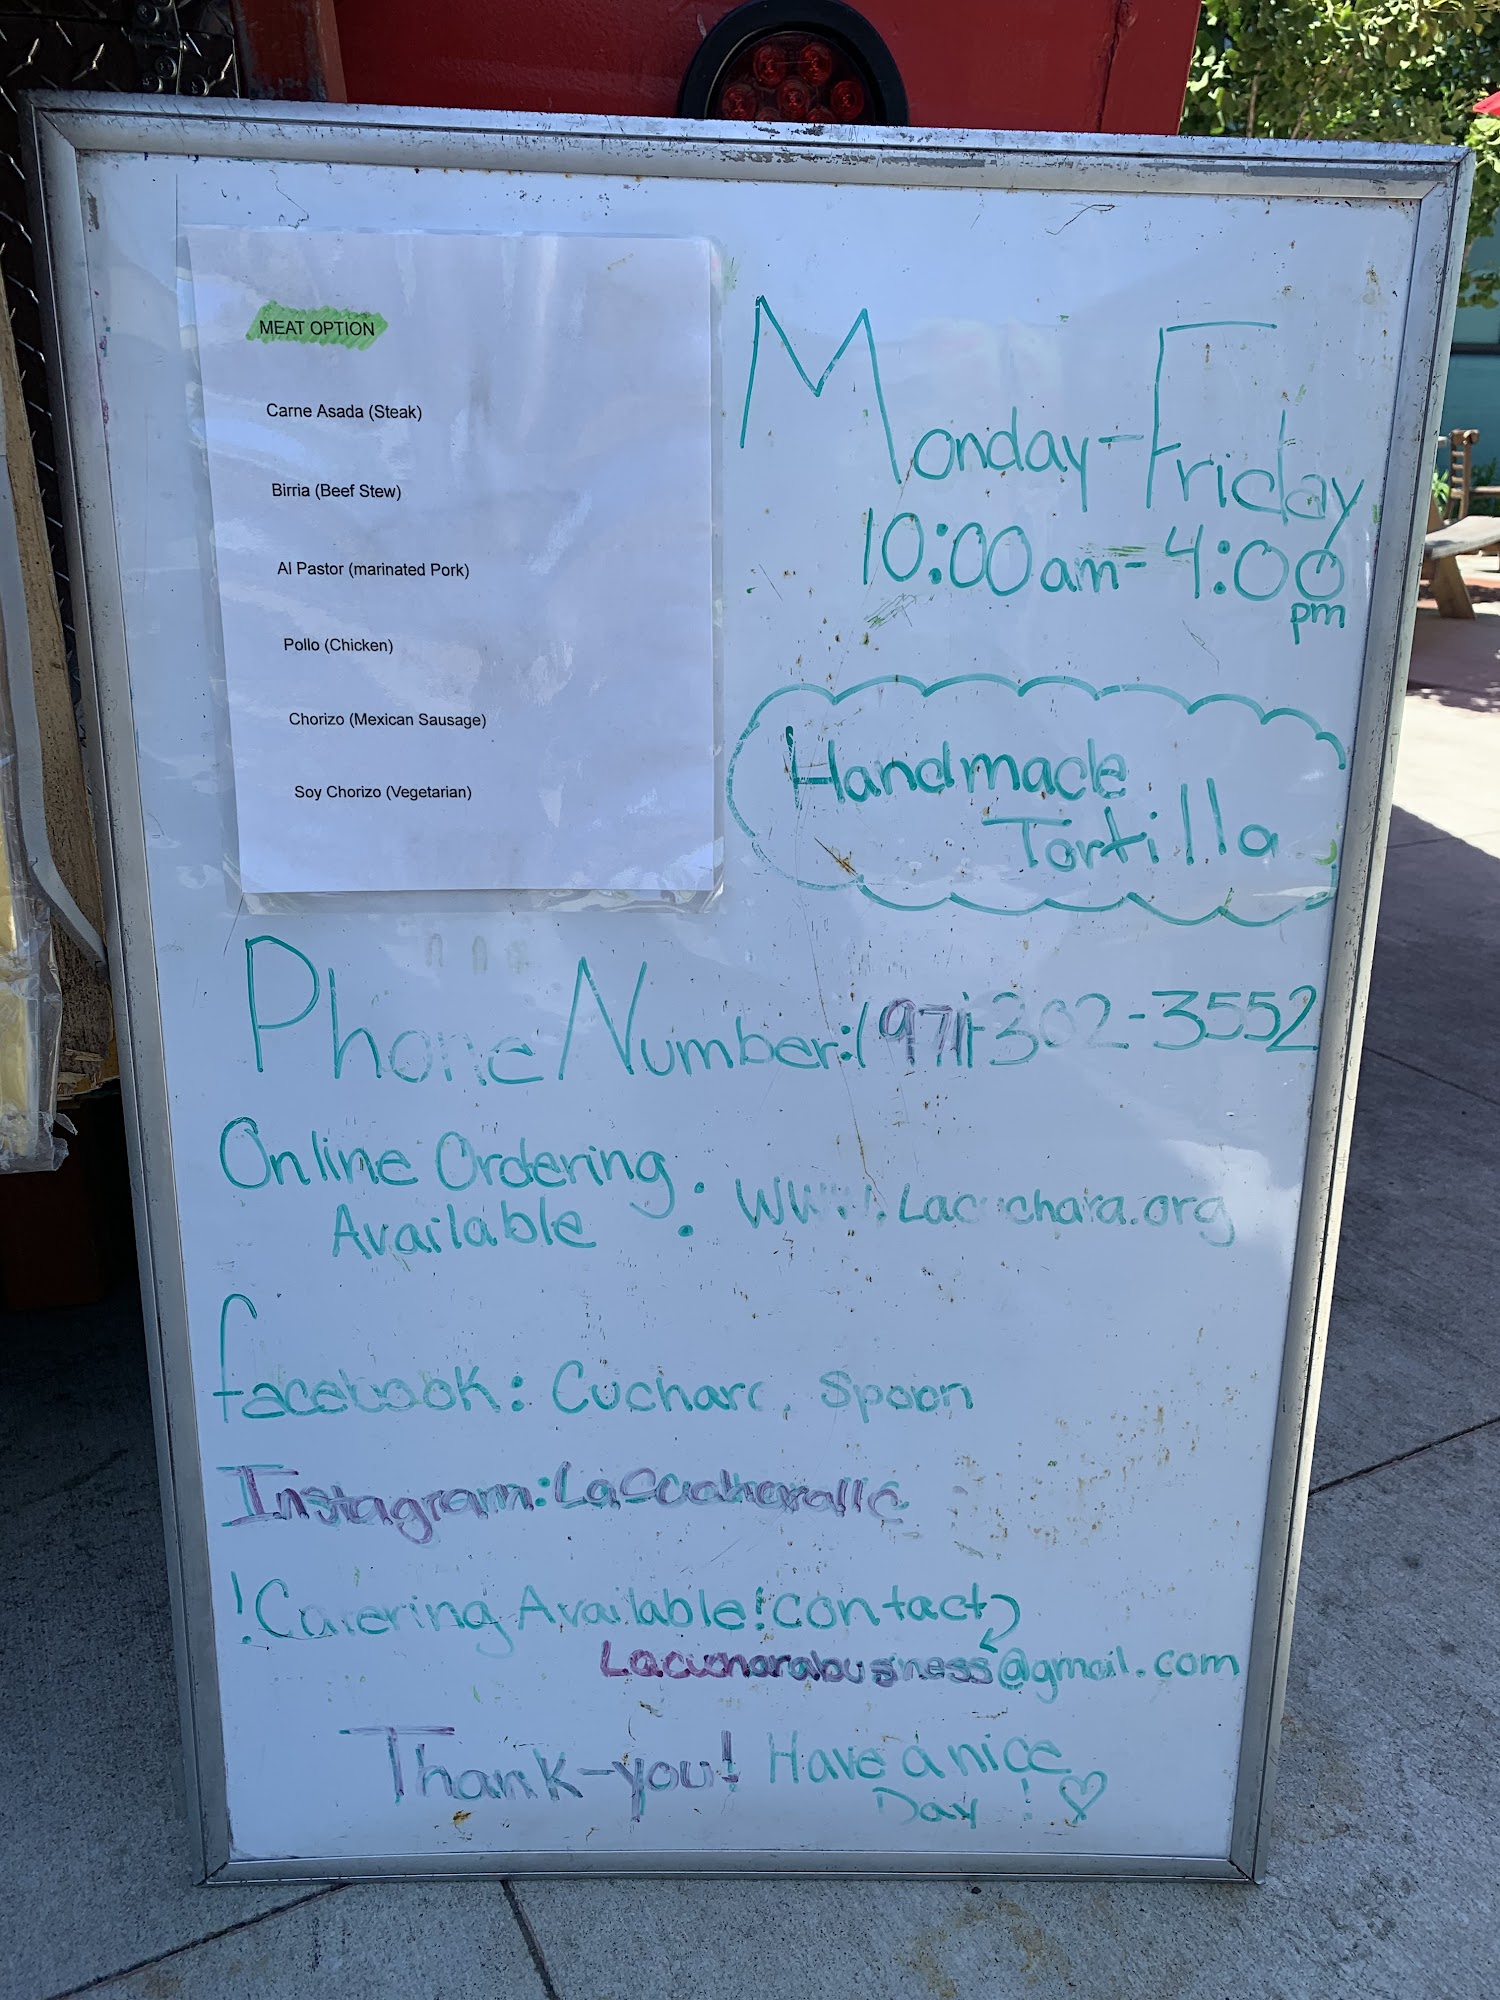 MEAT OPTION
Carne Asada (Steak)
Birria (Beef Stew)
Al Pastor (marinated Pork)
Pollo (Chicken)
Chorizo (Mexican Sausage)
Soy Chorizo (Vegetarian)
Monday-Friday
10:00am-4:00
pm
Handmade
Tortilla
Phone Number:(971)-302-3552
Online Ordering
Available : www.Lacuchara.org
facebook: Cuchara, Spoon
Instagram:
!Catering Available! contact
@gmail.com
Thank-you! Have a nice
Day !